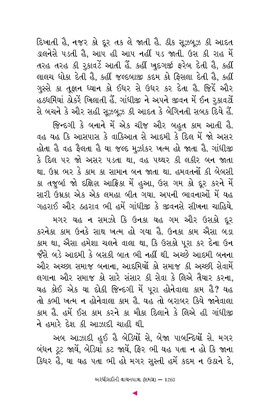 દિખાતી હૈ, નજર કો દૂર તક લે જાતી હૈ. ઠીક સૂઝબૂઝ કી આદત
ડાલનેસે પડતી હૈ, આપ હી આપ નહીં પડ જાતી. ઉસ કી રાહ મેં
તરહ તરહ કી રુકાવટેં આતી હૈં. કહીં ખુદગર્જી ફરેબ દેતી હૈ, કહીં
લાલચ ધોકા દેતી હૈ, કહીં જલ્દબાજી કદમ કો ફિસલા દેતી હૈ, કહીં
ગુસ્સે કા તૂફાન ધ્યાન કો ઇધર સે ઉધર કર દેતા હૈ, જિદેં ઔર
હઠધર્મિયાં ઠોકરેં ખિલાતી હૈં. ગાંધીજી ને અપને જીવન મેં ઇન રુકાવટોં
સે બચને કે ઔર સહી સૂઝબૂઝ કી આદત કે બેગિનતી સબક દિયે હૈં.
જિન્દગી કે બનાને મેં એક ચીજ ઔર બહુત કામ આતી હૈ.
વહ યહ કિ આસપાસ કે વાકિઆત સે આદમી કે દિલ મેં જો અસર
હોતા હૈ વહ ફૈલતા હૈ યા જલ્દ મુર્ઝાકર ખત્મ હો જાતા હૈ. ગાંધીજી
કે દિલ પર જો અસર પડતા થા, વહ પથ્થર કી લકીર બન જાતા
થા. ઉમ્ર ભર કે કામ કા સામાન બન જાતા થા. હમવતનોં કી બેબસી
કા તજુર્બા જો દક્ષિણ આફ્રિકા મેં હુઆ, ઉસ ગમ કો દૂર કરને મેં
સારી ઉમ્રકા એક એક લમહા બીત ગયા. અપની ભાવનાઓં મેં યહ
ગહરાઈ ઔર ઠહરાવ ભી હમેં ગાંધીજી કે જીવનસે સીખના ચાહિયે.
મગર યહ ન સમઝો કિ ઉનકા યહ ગમ ઔર ઉસકો દૂર
કરનેકા કામ ઉનકે સાથ ખત્મ હો ગયા હૈ. ઉનકા કામ ઐસા બડા
કામ થા, ઐસા હમેશા ચલને વાલા થા, કિ ઉસકો પૂરા કર દેના ઉન
જૈસે બડે આદમી કે બસકી બાત ભી નહીં થી. અચ્છે આદમી બનના
ઔર અચ્છા સમાજ બનાના, આદમિયોં કો સમાજ કી અચ્છી સેવામેં
લગાના ઔર સમાજ કો સારે સંસાર કી સેવા કે લિએ તૈયાર કરના,
યહ કોઈ એક યા દોકી જિન્દગી મેં પૂરા હોનેવાલા કામ હૈ? યહ
તો કભી ખત્મ ન હોનેવાલા કામ હૈ. યહ તો બરાબર કિયે જાનેવાલા
કામ હૈ. હમેં ઇસ કામ કરને કા મૌકા દિલાને કે લિએ હી ગાંધીજી
ને હમારે દેશ કી આઝાદી ચાહી થી.
અબ આઝાદી હુઈ હૈ બેડિયોં સે, બેજા પાબન્દિયોં સે. મગર
બંધન ટૂટ જાયેં, બેડિયાં કટ જાયેં, ફિર ભી યહ પતા ન હો કિ જાના
કિધર હૈ, યા યહ પતા ભી હો મગર સુસ્તી હમેં કદમ ન ઉઠાને દે,